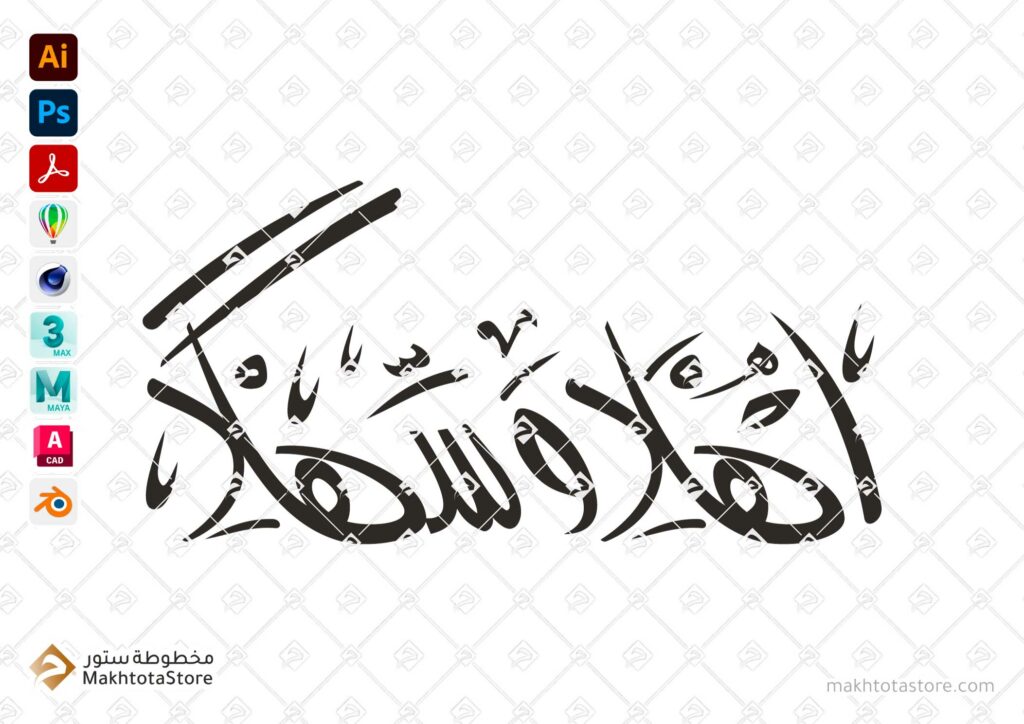 Ai
Ps
3
MAX
M
MAYA
A
CAD
أهلا وسهلا
مخطوطة ستور
MakhtotaStore
makhtotastore.com